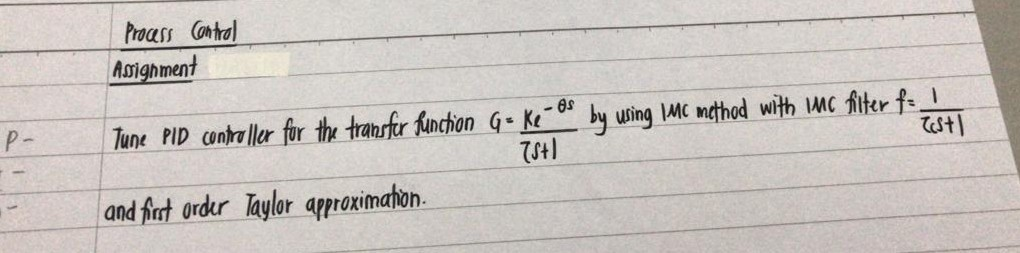 Process Control
Assignment
P- Tune PID controller for the transfer function G = Ke^-θs / τs+1 by using IMC method with IMC filter f = 1 / τcs+1
and first order Taylor approximation.